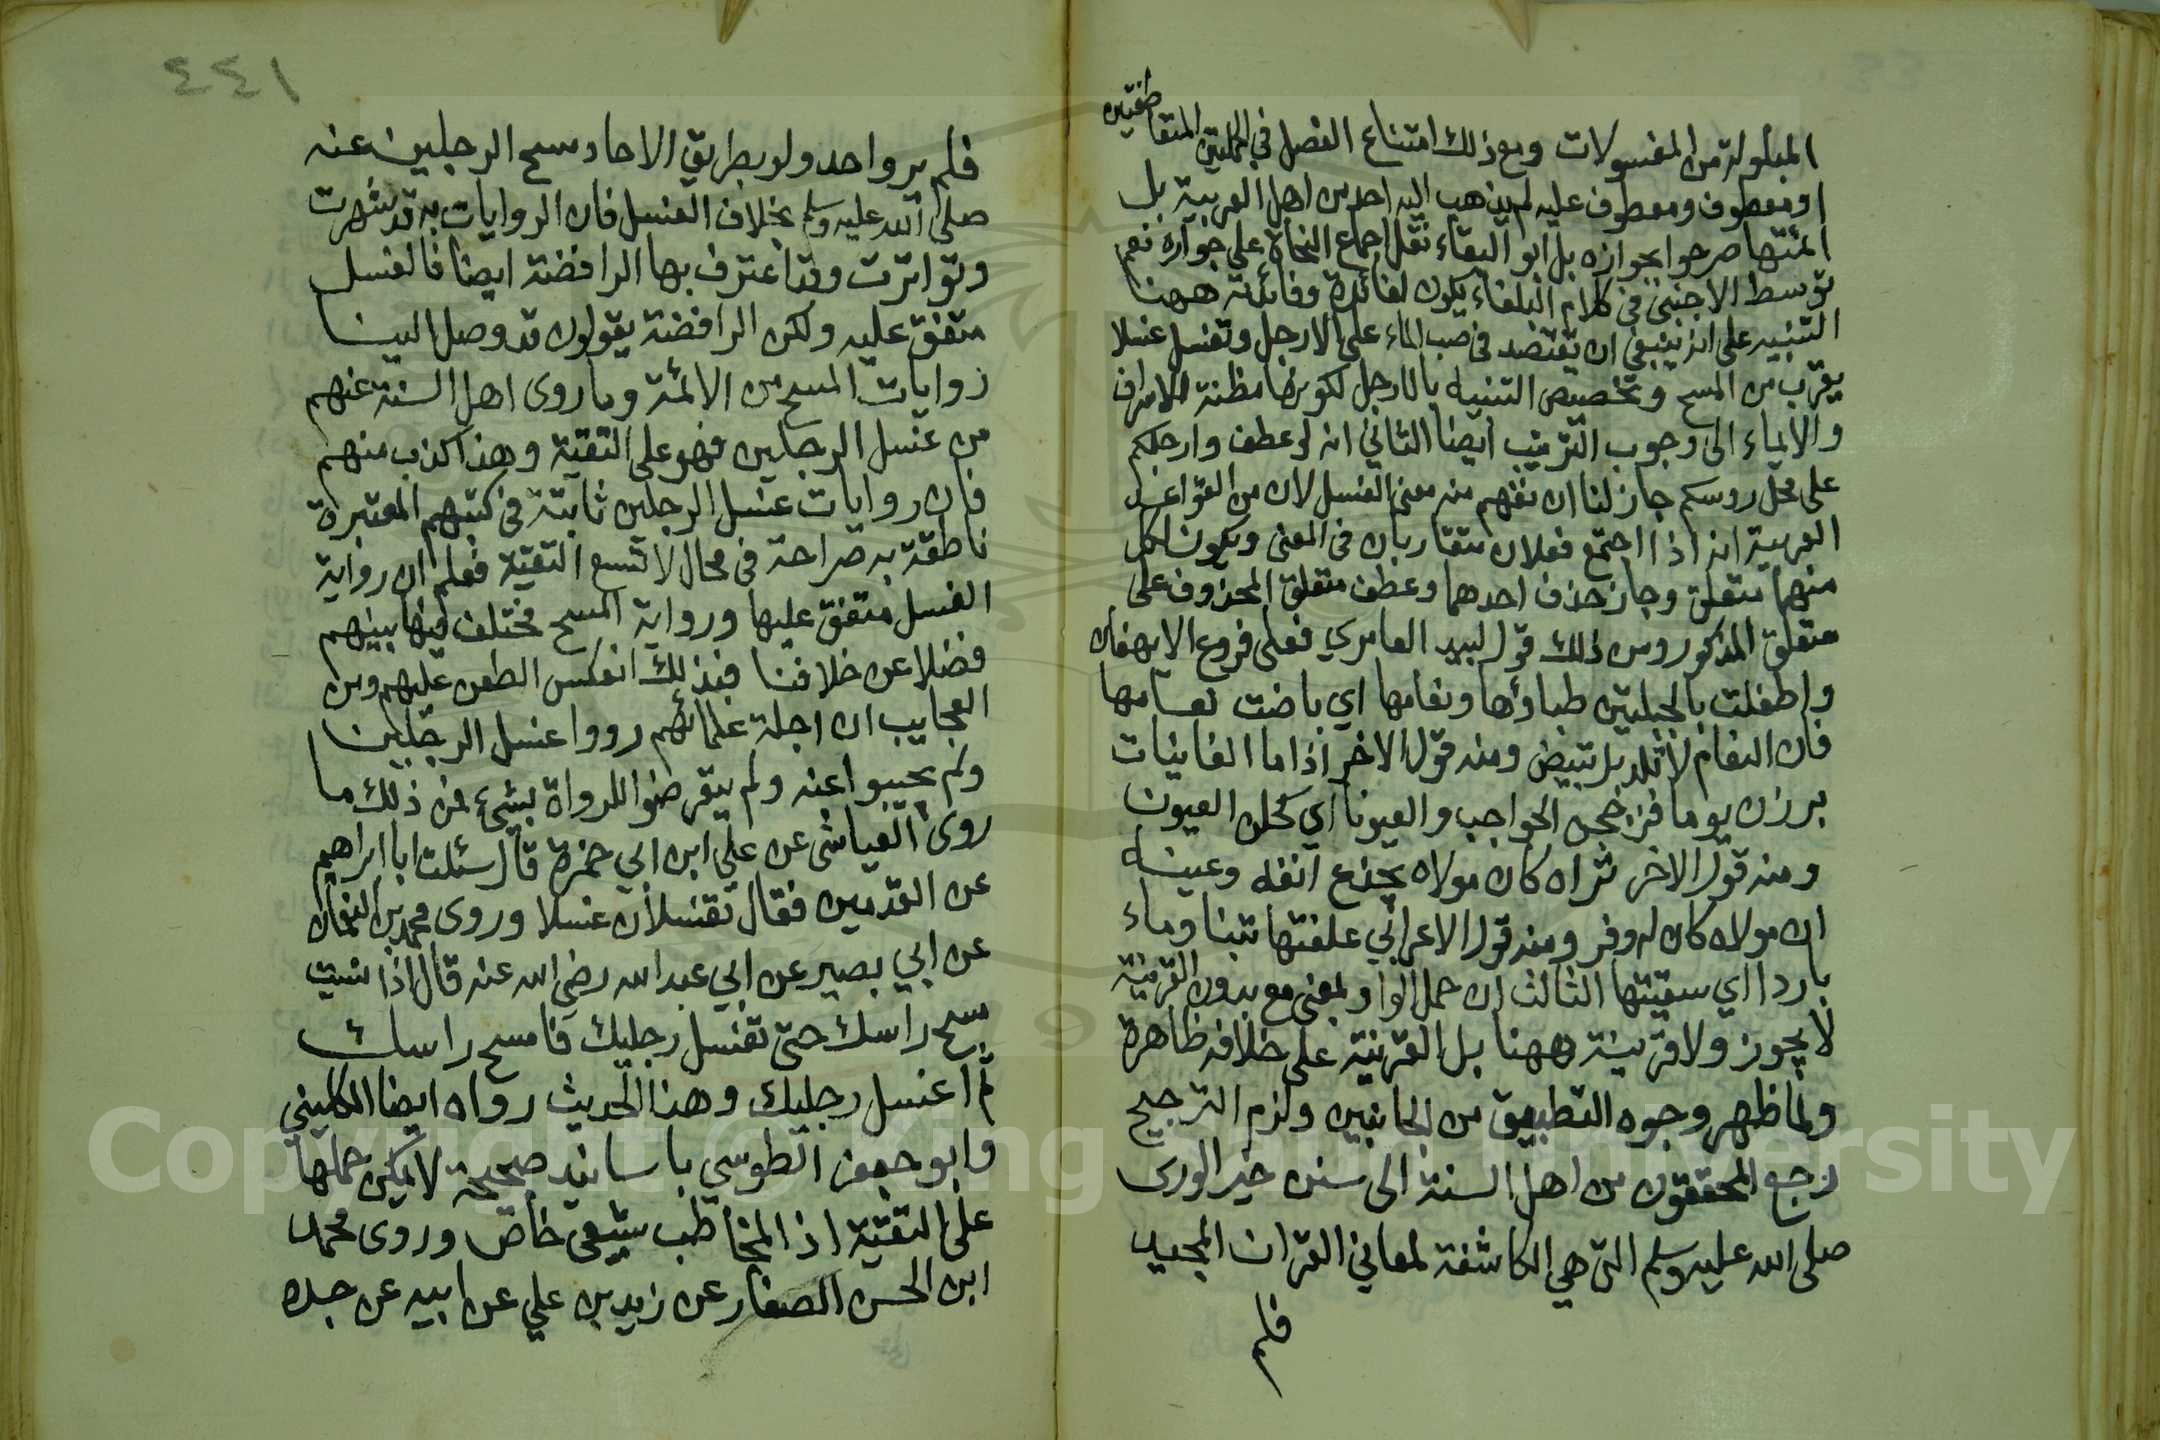 المبلولة من المغسولات ومع ذلك امتناع الفصل في الجملتين المتعاطفتين
او معطوف ومعطوف عليه لم يذهب اليه احد من اهل العربية بل
ائمتها صرحوا بجوازه بل ابو البقاء نقل اجماع النحاة على جوازه نعم
توسط الاجنبي في كلام البلغاء يكون لفائدة وفائدته ههنا
التنبيه على انه ينبغي ان يقتصد في صب الماء على الارجل وتغسل غسلا
يقرب من المسح وتخصيص التنبيه بالارجل لكونها مظنة الاسراف
والايماء الى وجوب الترتيب ايضا الثاني انه لو عطف وارجلكم
على محل روسكم جاز لنا ان نفهم منه معنى الغسل لان من القواعد
العربية انه اذا اجتمع فعلان متقاربان في المعنى ويكون لكل
منهما متعلق وجاز حذف احدهما وعطف متعلق المحذوف على
متعلق المذكور ومن ذلك قول لبيد العامري فعلى فروع الايهفان
واطفلت بالجلهتين ظباؤها ونعامها اي باضت نعامها
فان النعام لا تلد بل تبيض ومنه قول الاخر اذا ما الغانيات
برزن يوما فزججن الحواجب والعيونا اي كحلن العيون
ومنه قول الاخر تراه كان مولاه يجذع انفه وعينيه
ان مولاه كان له وفر ومنه قول الاعرابي علفتها تبنا وماء
باردا اي سقيتها الثالث ان حمل الواو بمعنى مع بدون القرينة
لا يجوز ولا قرينة ههنا بل القرينة على خلافه ظاهرة
ولما ظهر وجوه التطبيق من الجانبين ولزم الترجيح
رجع المحققون من اهل السنة الى سنن خير الورى
صلى الله عليه وسلم التي هي الكاشفة لمعاني القران المجيد
فلم
٤٤١
فلم يرو احد ولو بطريق الاحاد مسح الرجلين عنه
صلى الله عليه وسلم بخلاف الغسل فان الروايات به قد شهرت
وتواترت وقد اعترف بها الرافضة ايضا فالغسل
متفق عليه ولكن الرافضة يقولون قد وصل الينا
روايات المسح من الائمة وما روى اهل السنة عنهم
من غسل الرجلين فهو على التقية وهذا كذب منهم
فان روايات غسل الرجلين ثابتة في كتبهم المعتبرة
ناطقة به صراحة في محال لا تسع التقية فعلم ان رواية
الغسل متفق عليها ورواية المسح مختلف فيها بينهم
فضلا عن خلافنا فبذلك انعكس الطعن عليهم ومن
العجايب ان اجلة علمائهم رووا غسل الرجلين
ولم يجيبوا عنه ولم يتعرضوا للرواة بشيء فمن ذلك ما
روى العياشي عن علي ابن ابي حمزة قال سئلت ابا ابراهيم
عن القدمين فقال تغسلان غسلا وروى محمد بن النعمان
عن ابي بصير عن ابي عبد الله رضي الله عنه قال اذا نسيت
مسح راسك حتى تغسل رجليك فامسح راسك
ثم اغسل رجليك وهذا الحديث رواه ايضا الكليني
وابو جعفر الطوسي باسانيد صحيحة لا يمكن حملها
على التقية اذ المخاطب شيعي خاص وروى محمد
ابن الحسن الصفار عن زيد بن علي عن ابيه عن جده
Copyright © King Saud University